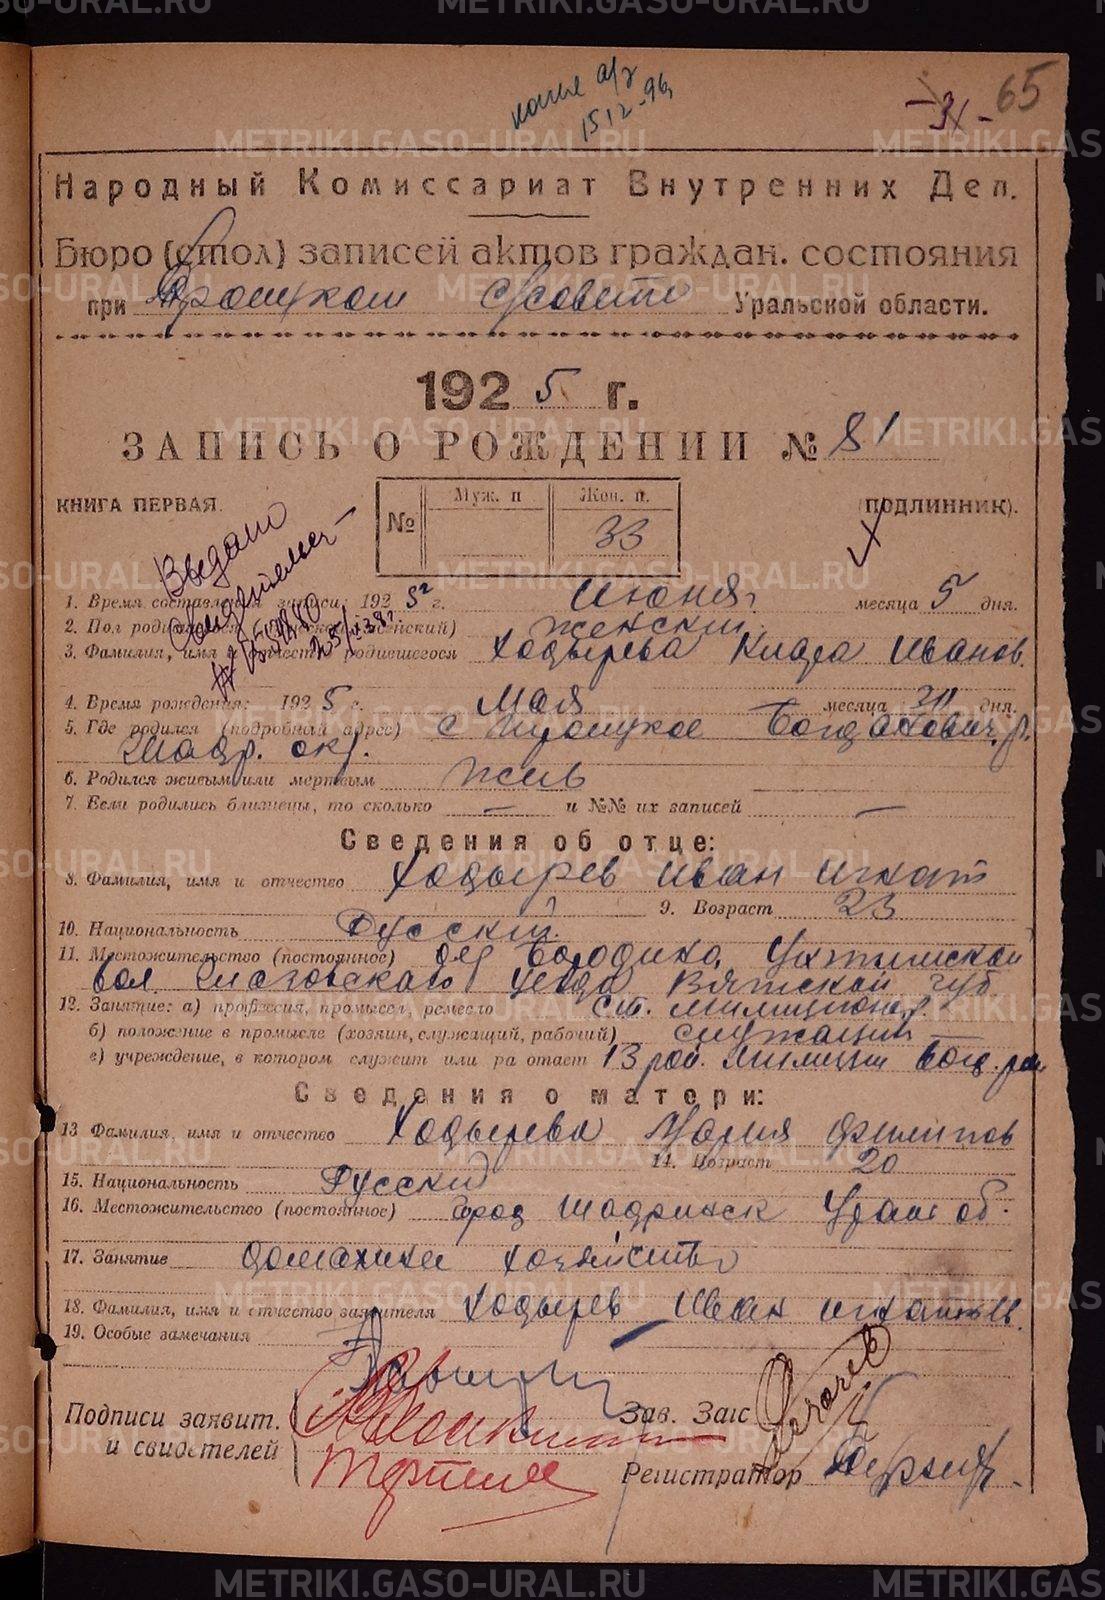 65
15 12-96
Народный Комиссариат Внутренних Дел.
Бюро (стол) записей актов граждан. состояния
при Троицком с/совете Уральской области.
1925 г.
ЗАПИСЬ О РОЖДЕНИИ № 81
КНИГА ПЕРВАЯ.
№ Муж. п Жен. п.
33
(ПОДЛИННИК).
Выдано
свидетельст
1. Время составления записи: 1925 г. Июня месяца 5 дня.
2. Пол родившегося (мужской, женский) женский
3. Фамилия, имя и отчество родившегося Ходырева Клара Иванов.
4. Время рождения: 1925 г. Мая месяца 31 дня.
5. Где родился (подробный адрес) с Троицкое Богданович. р.
Шадр. окр.
6. Родился живым или мертвым жив
7. Если родились близнецы, то сколько — и №№ их записей —
Сведения об отце:
8. Фамилия, имя и отчество Ходырев Иван Игнат
9. Возраст 23
10. Национальность Русский
11. Местожительство (постоянное) дер Бородино, Ухтымской
вол. Глазовского уезда Вятской губ
12. Занятие: а) профессия, промысел, ремесло ст. милиционер
б) положение в промысле (хозяин, служащий, рабочий) служащий
в) учреждение, в котором служит или работает 13 рай. милиции Богд. рай
Сведения о матери:
13 Фамилия, имя и отчество Ходырева Мария Филипов
14. Возраст 20
15. Национальность Русский
16. Местожительство (постоянное) город Шадринск Урал об.
17. Занятие домашнем хозяйство
18. Фамилия, имя и отчество заявителя Ходырев Иван Игнатьев.
19. Особые замечания
Подписи заявит.
и свидетелей
Зав. Загс
Регистратор
METRIKI.GASO-URAL.RU